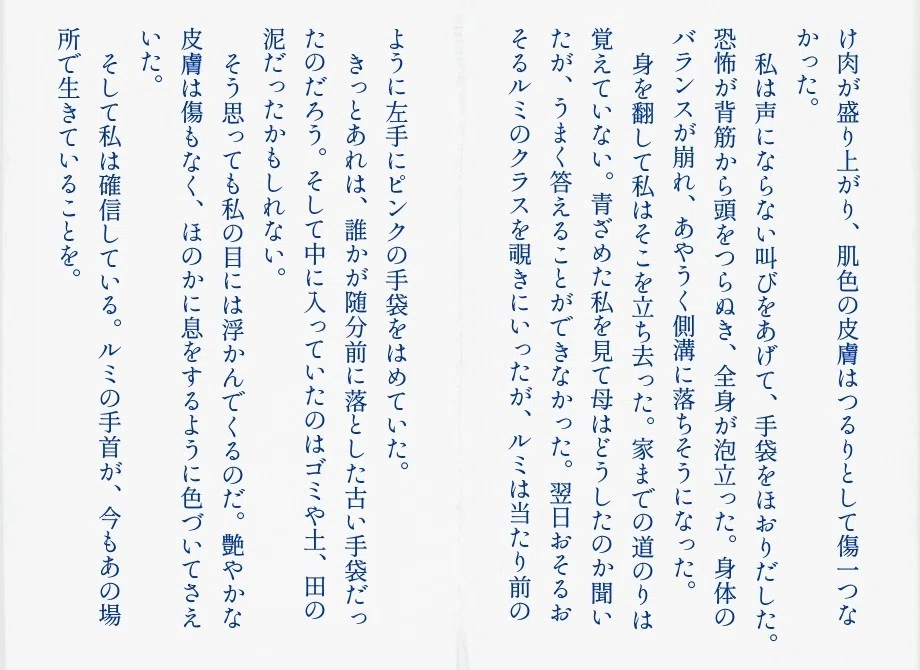 け肉が盛り上がり、肌色の皮膚はつるりとして傷一つな
かった。
私は声にならない叫びをあげて、手袋をほおりだした。
恐怖が背筋から頭をつらぬき、全身が泡立った。身体の
バランスが崩れ、あやうく側溝に落ちそうになった。
身を翻して私はそこを立ち去った。家までの道のりは
覚えていない。青ざめた私を見て母はどうしたのか聞い
たが、うまく答えることができなかった。翌日おそるお
そるルミのクラスを覗きにいったが、ルミは当たり前の
ように左手にピンクの手袋をはめていた。
きっとあれは、誰かが随分前に落とした古い手袋だっ
たのだろう。そして中に入っていたのはゴミや土、田の
泥だったかもしれない。
そう思っても私の目には浮かんでくるのだ。艶やかな
皮膚は傷もなく、ほのかに息をするように色づいてさえ
いた。
そして私は確信している。ルミの手首が、今もあの場
所で生きていることを。